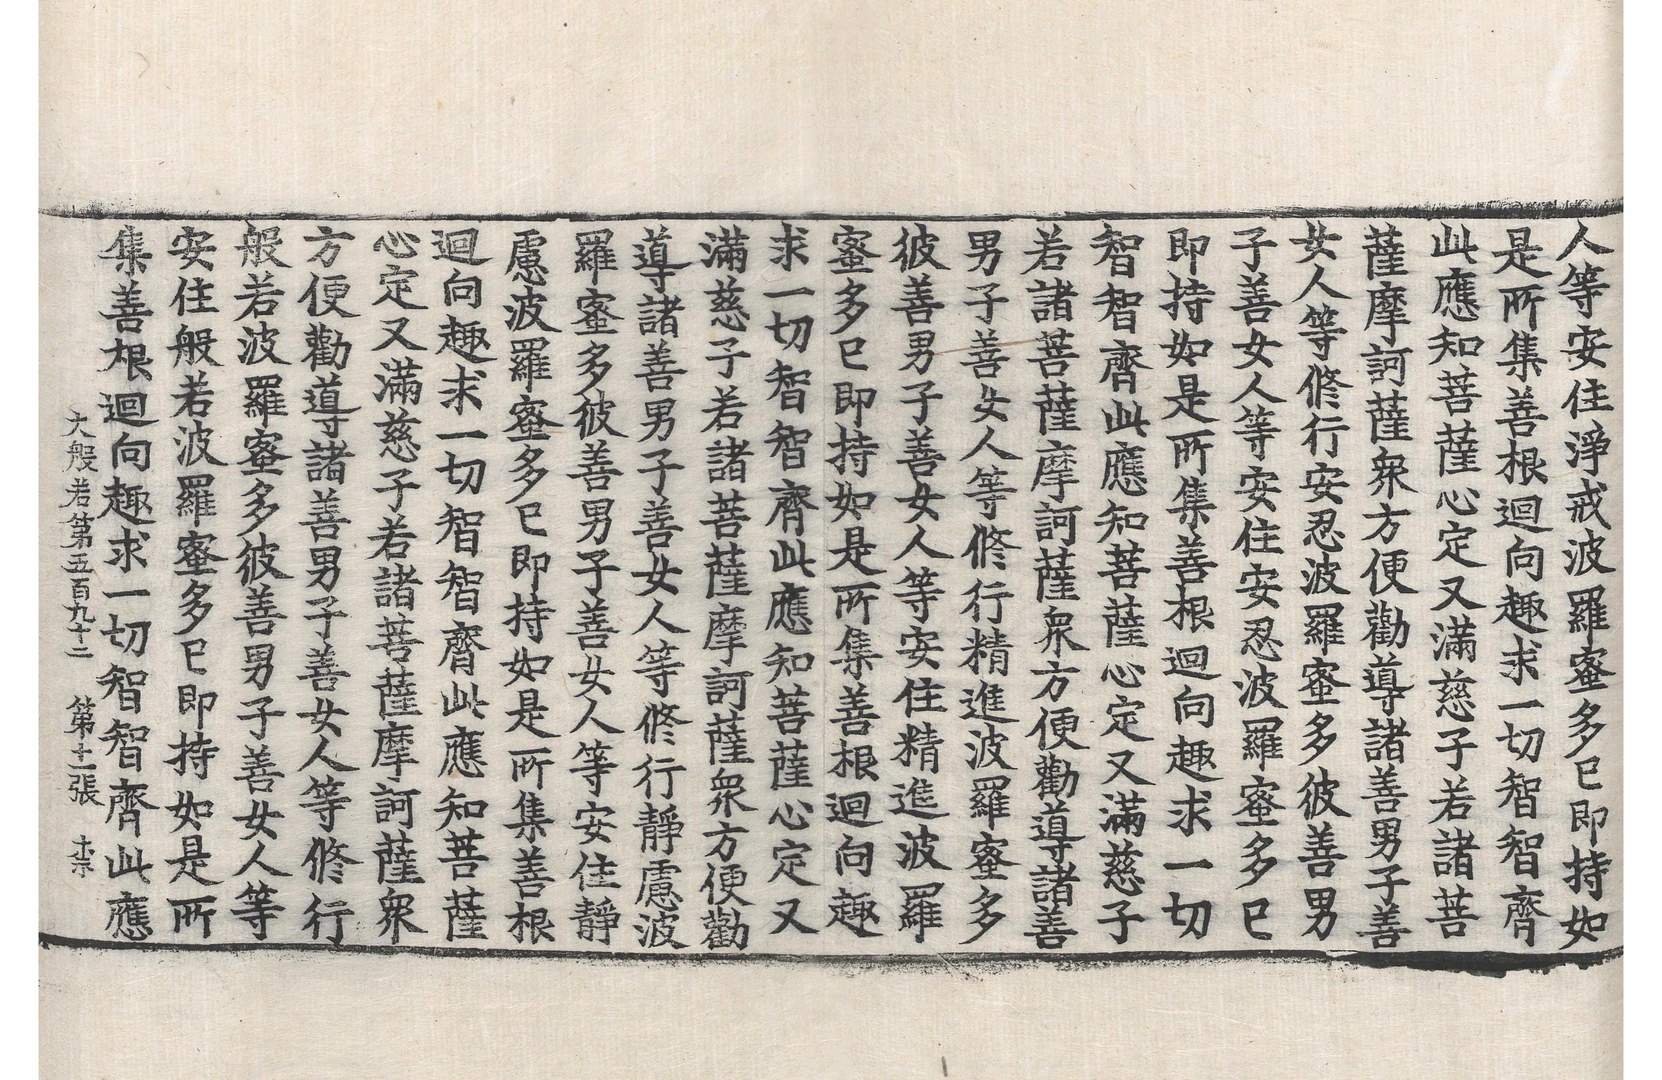 人等安住淨戒波羅蜜多已即持如
是所集善根迴向趣求一切智智齊
此應知菩薩心定又滿慈子若諸菩
薩摩訶薩衆方便勸導諸善男子善
女人等修行安忍波羅蜜多彼善男
子善女人等安住安忍波羅蜜多已
即持如是所集善根迴向趣求一切
智智齊此應知菩薩心定又滿慈子
若諸菩薩摩訶薩衆方便勸導諸善
男子善女人等修行精進波羅蜜多
彼善男子善女人等安住精進波羅
蜜多已即持如是所集善根迴向趣
求一切智智齊此應知菩薩心定又
滿慈子若諸菩薩摩訶薩衆方便勸
導諸善男子善女人等修行靜慮波
羅蜜多彼善男子善女人等安住靜
慮波羅蜜多已即持如是所集善根
迴向趣求一切智智齊此應知菩薩
心定又滿慈子若諸菩薩摩訶薩衆
方便勸導諸善男子善女人等修行
般若波羅蜜多彼善男子善女人等
安住般若波羅蜜多已即持如是所
集善根迴向趣求一切智智齊此應
大般若第五百九十二 第十一張 柰